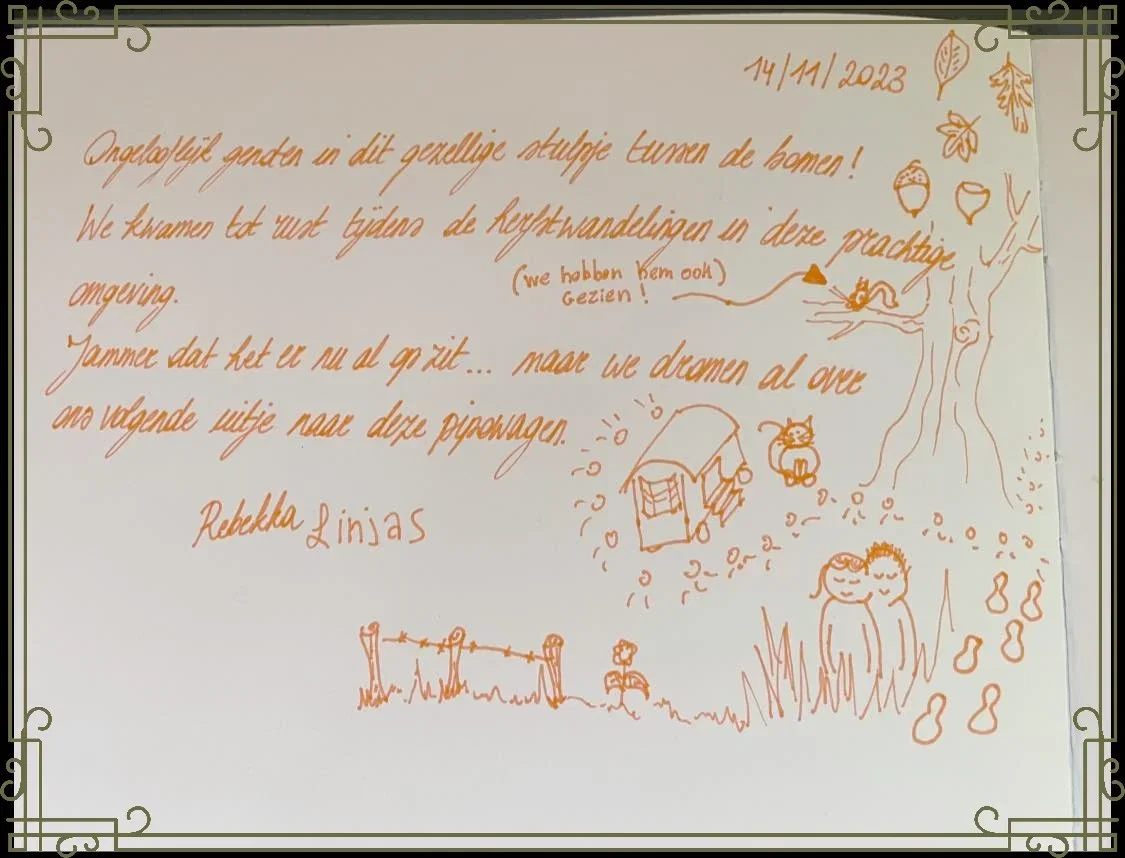 14/11/2023
Ongelooflijk genoten in dit gezellige stulpje tussen de bomen!
We kwamen tot rust tijdens de herfstwandelingen in deze prachtige
omgeving.
(we hebben hem ook)
gezien!
Jammer dat het er nu al op zit... maar we dromen al over
ons volgende uitje naar deze pipowagen.
Rebekka Linjas